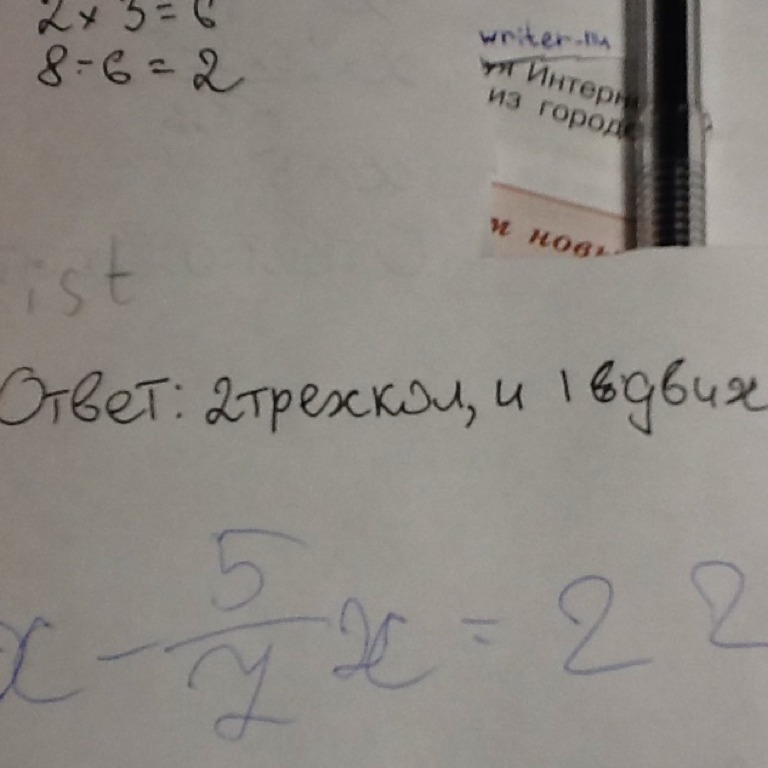 2 × 3 = 6
8 - 6 = 2
writer-
Интерн
из город
и новы
ist
Ответ: 2трехкол, и 1 вдвих
x - 5/7 x = 22